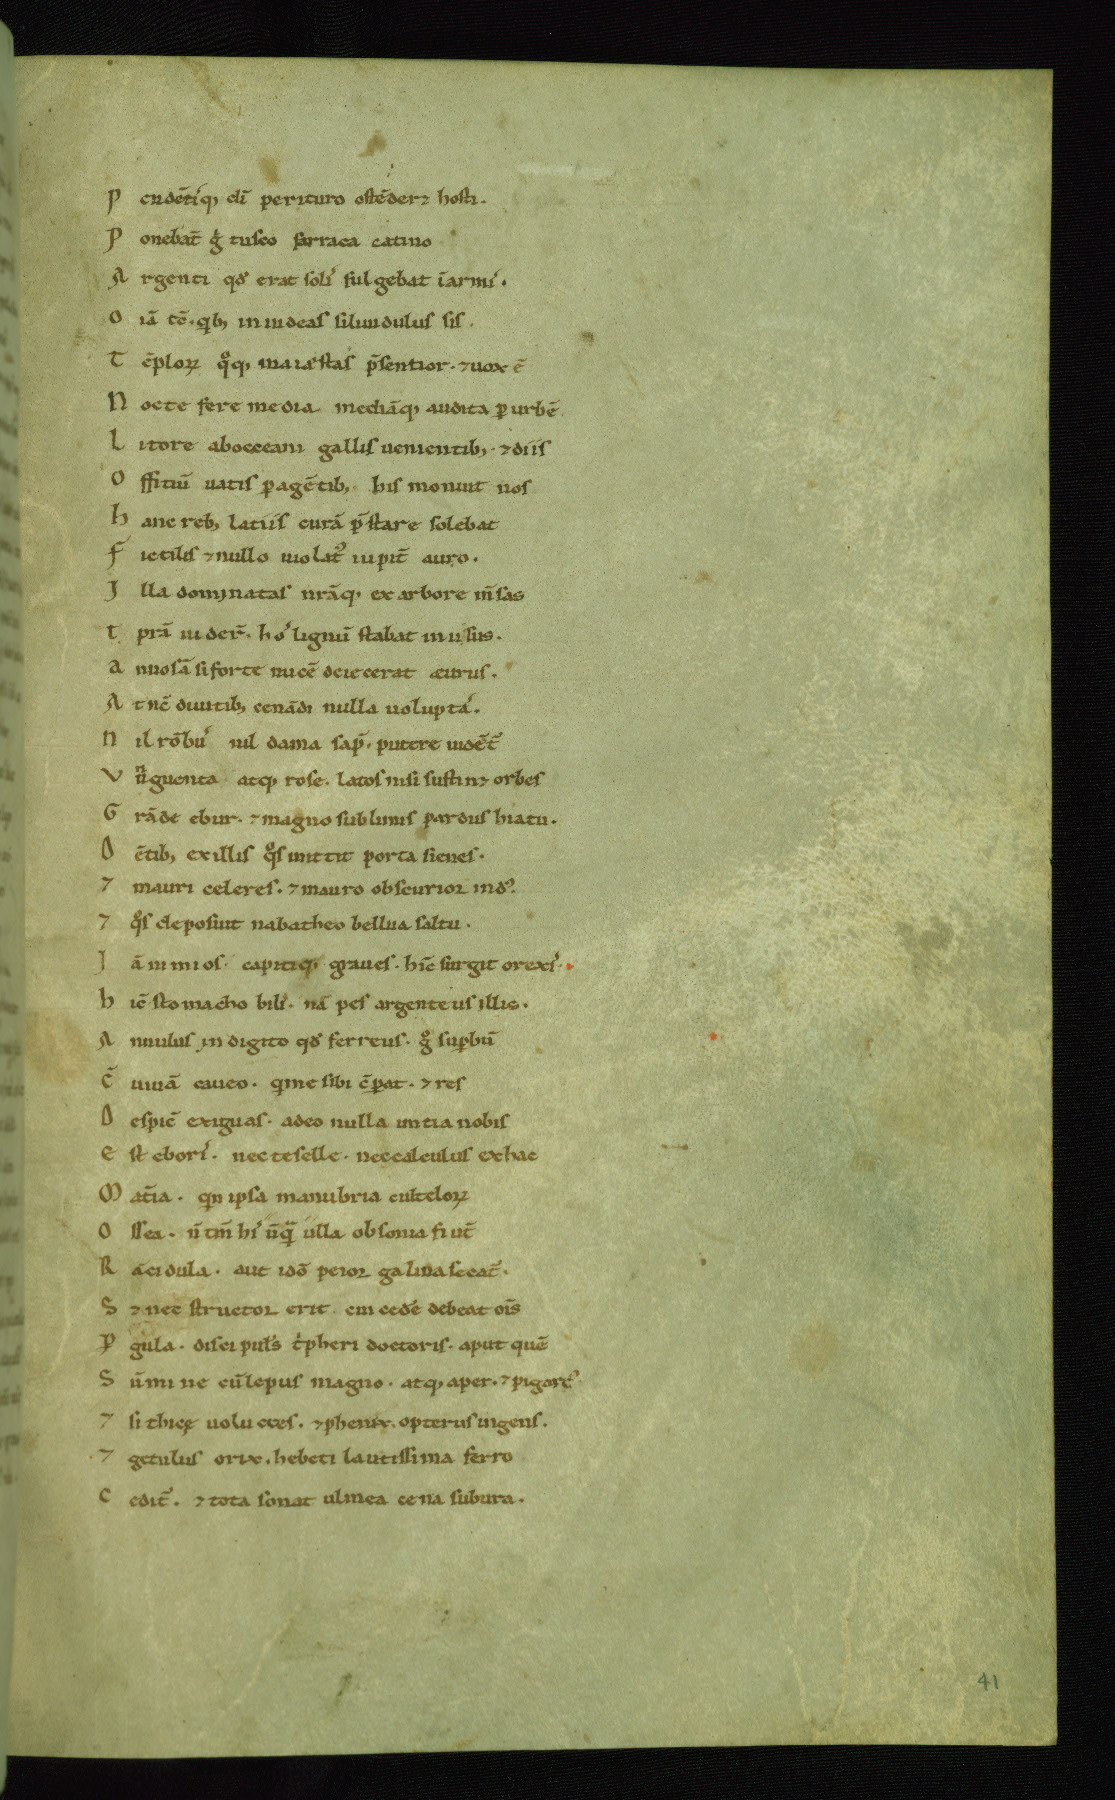 P endẽtiq; dī perituro ostẽderꝫ hosti.
P onebat̄ g̊ tusco farraea catino
A rgenti qd̓ erat soli᷒ fulgebat ĩarmi᷒.
O ĩa tc̄. qib; inuideas siliuidulus sis.
T ẽploꝝ qͦq; maiestas p̄sentior. ⁊ uox ē
N octe fere media mediãq; audita ꝑ urbẽ
L itore abocceani gallis uenientib; ⁊ diis
O ffitiũ uatis ꝑagẽtib; his monuit nos
h anc reb; latiis curã p̄stare solebat
F̄ ictilis ⁊ nullo uiolat᷒ iupit̄ auro.
I lla dominatas nrãq; ex arbore m̄sas
t prã uider̄. ho᷒ lignũ stabat inusus.
a nnosã si forte nucẽ deiecerat eurus.
A t nc̄ diuitib; cenãdi nulla uolupta᷒.
N il rõbu᷒ nil dama sap̄. putere uidẽt᷒
V nguenta atq; rose. latos nisi sustinꝫ orbes
G rãde ebur. ⁊ magno sublimis pardus hiatu.
D ẽtib; ex illis qͦs mittit porta sienes.
⁊ mauri celeres. ⁊ mauro obscurior ind᷒.
⁊ qͦs deposuit nabatheo bellua saltu.
I ã nimios. capitiq; graues. hīc surgit orexi᷒.
h īc stomacho bili᷒. nã pes argenteus illis.
A nnulus in digito qd̓ ferreus. g̊ suꝑbũ
C̄ uiuã caueo. qi me sibi c̄ꝑat. ⁊ res
D espic̄ exiguas. adeo nulla untia nobis
E st ebori᷒. nec teselle. nec calculus ex hac
M at̄ia. qin ipsa manubria culteloꝝ
O ssea. ñ tm̄ hi᷒ ũqã ulla obsonia fiūt
R ãcidula. aut idõ peior galina secat᷒.
S ⁊ nec structor erit cui cedẽ debeat ois̄
P gula. discipul᷒s t̓pheri doctoris. aput quẽ
S ũmine cũ lepus magno. atq; aper. ⁊ pigarg᷒
⁊ sithicę uolucres. ⁊ phenix opterus ingens.
⁊ getulus orix. hebeti lautissima ferro
C edit᷒. ⁊ tota sonat ulmea cena subura.
41